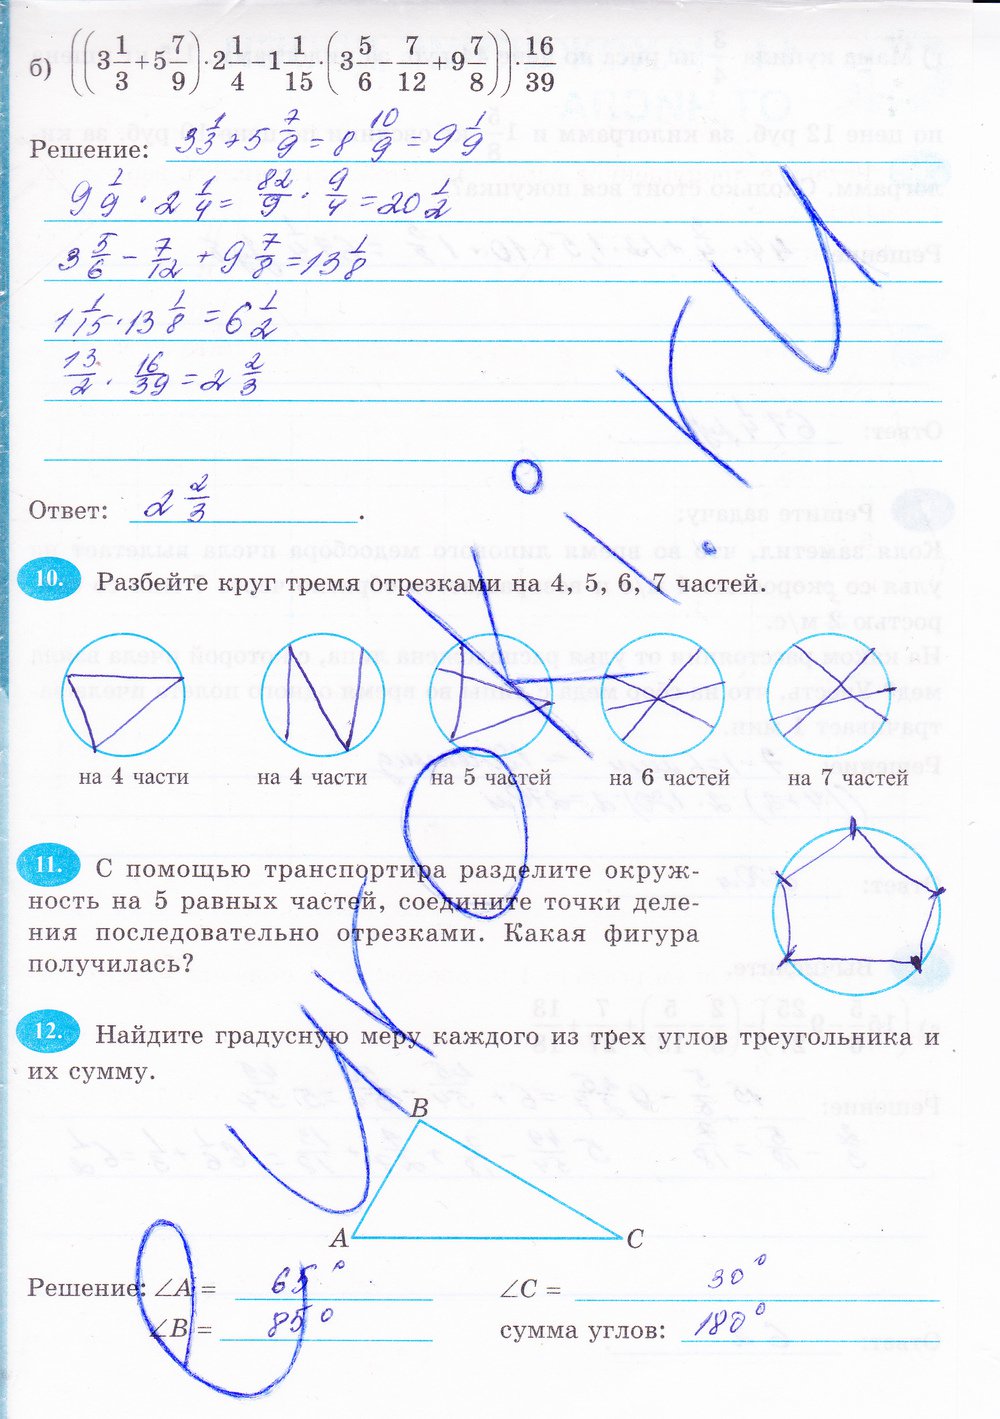 б) ((3 1/3 + 5 7/9) · 2 1/4 − 1 1/15 · (3 5/6 − 7/12 + 9 7/8)) · 16/39
Решение: 3 1/3 + 5 7/9 = 8 10/9 = 9 1/9
9 1/9 · 2 1/4 = 82/9 · 9/4 = 20 1/2
3 5/6 − 7/12 + 9 7/8 = 13 1/8
1 1/15 · 13 1/8 = 6 1/2
13/2 · 16/39 = 2 2/3
Ответ: 2 2/3.
10. Разбейте круг тремя отрезками на 4, 5, 6, 7 частей.
на 4 части на 4 части на 5 частей на 6 частей на 7 частей
11. С помощью транспортира разделите окруж-
ность на 5 равных частей, соедините точки деле-
ния последовательно отрезками. Какая фигура
получилась?
12. Найдите градусную меру каждого из трех углов треугольника и
их сумму.
B
A C
Решение: ∠A = 65° ∠C = 30°
∠B = 85° сумма углов: 180°